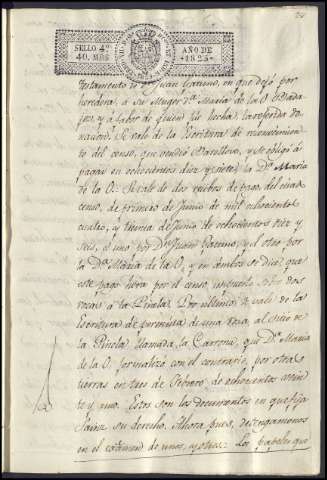 SELLO 4º
40. MRS
AÑO DE
1825
testamento de Dn. Juan Gaveno, en que dejó por
heredera, á su Muger Dª. Maria de la O. Bada-
joz, y á labor de quien fué hecha, la referida do-
nacion. Se vale de la Escritura de reconocimien-
to del censo, que vendió Barellovo, y se obligó á
pagar en ochocientos diez y siete, la Dª. Maria
de la O. Se vale de dos recibos de pago, del citado
censo, de primero de Junio de mil ochocientos
cuatro, y treinta de Junio de ochocientos diez y
seis, el uno por Dn. Juan Gaveno, y el otro por
la Dª. Maria de la O, y en ambos se dice, que
este pago era por el censo impuesto sobre dos
rozas á la Piñela. Por ultimo, se vale de las
Escritura de permuta de una roza, al sitio de
la Piñela llamada la Carrona, que Dª. Maria
de la O. formalizó con el contrario, por otras
tierras en tres de Febrero, de ochocientos vein-
te y uno. Estos son los documentos en que fija
Sainz su derecho. Ahora pues, detengamonos
en el exâmen de unos, y otros. Los papeles que